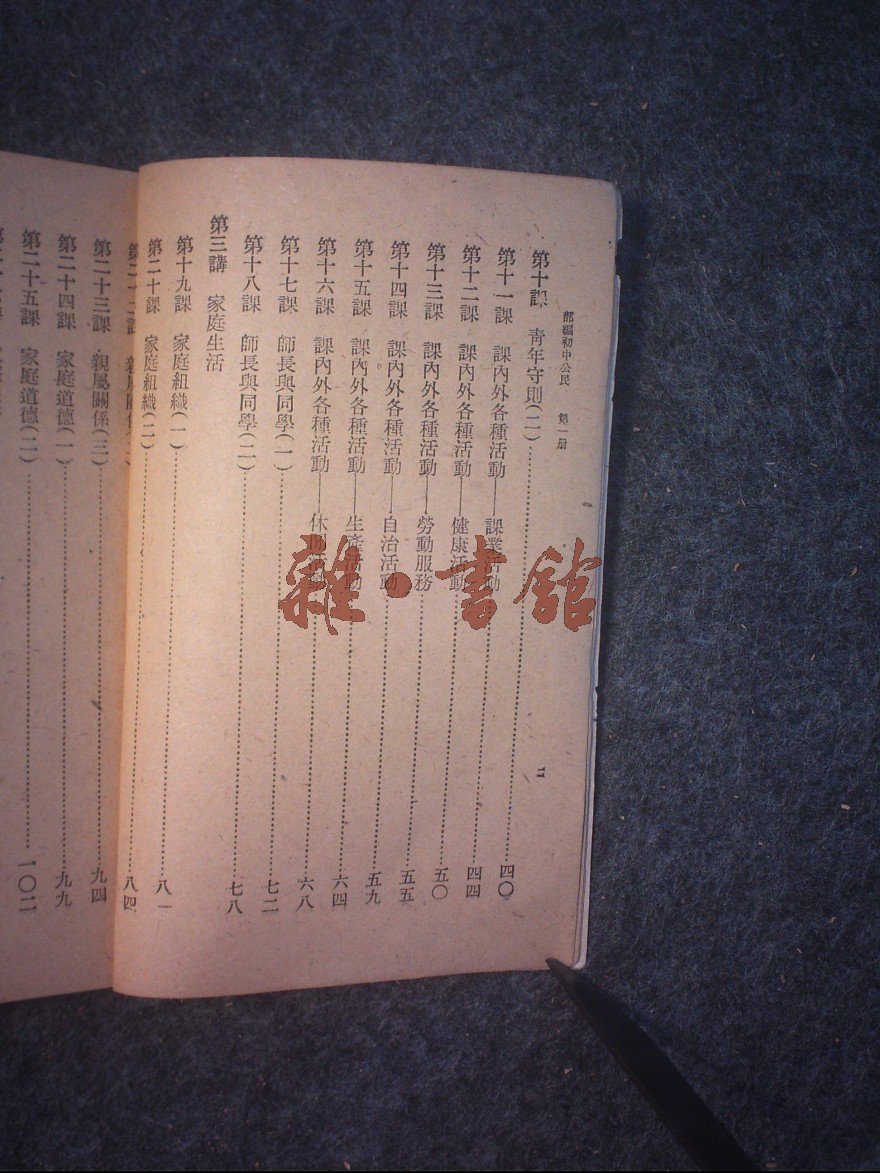 部編初中公民 第一册
二
第十課 青年守則(二)……四〇
第十一課 課內外各種活動——課業活動……四四
第十二課 課內外各種活動——健康活動……五〇
第十三課 課內外各種活動——勞動服務……五五
第十四課 課內外各種活動——自治活動……五九
第十五課 課內外各種活動——生產活動……六四
第十六課 課內外各種活動——休閒活動……六八
第十七課 師長與同學(一)……七二
第十八課 師長與同學(二)……七八
第三講 家庭生活
第十九課 家庭組織(一)……八一
第二十課 家庭組織(二)……八四
第二十三課 親屬關係(三)……九四
第二十四課 家庭道德(一)……九九
第二十五課 家庭道德(二)……一〇二
雜·書館